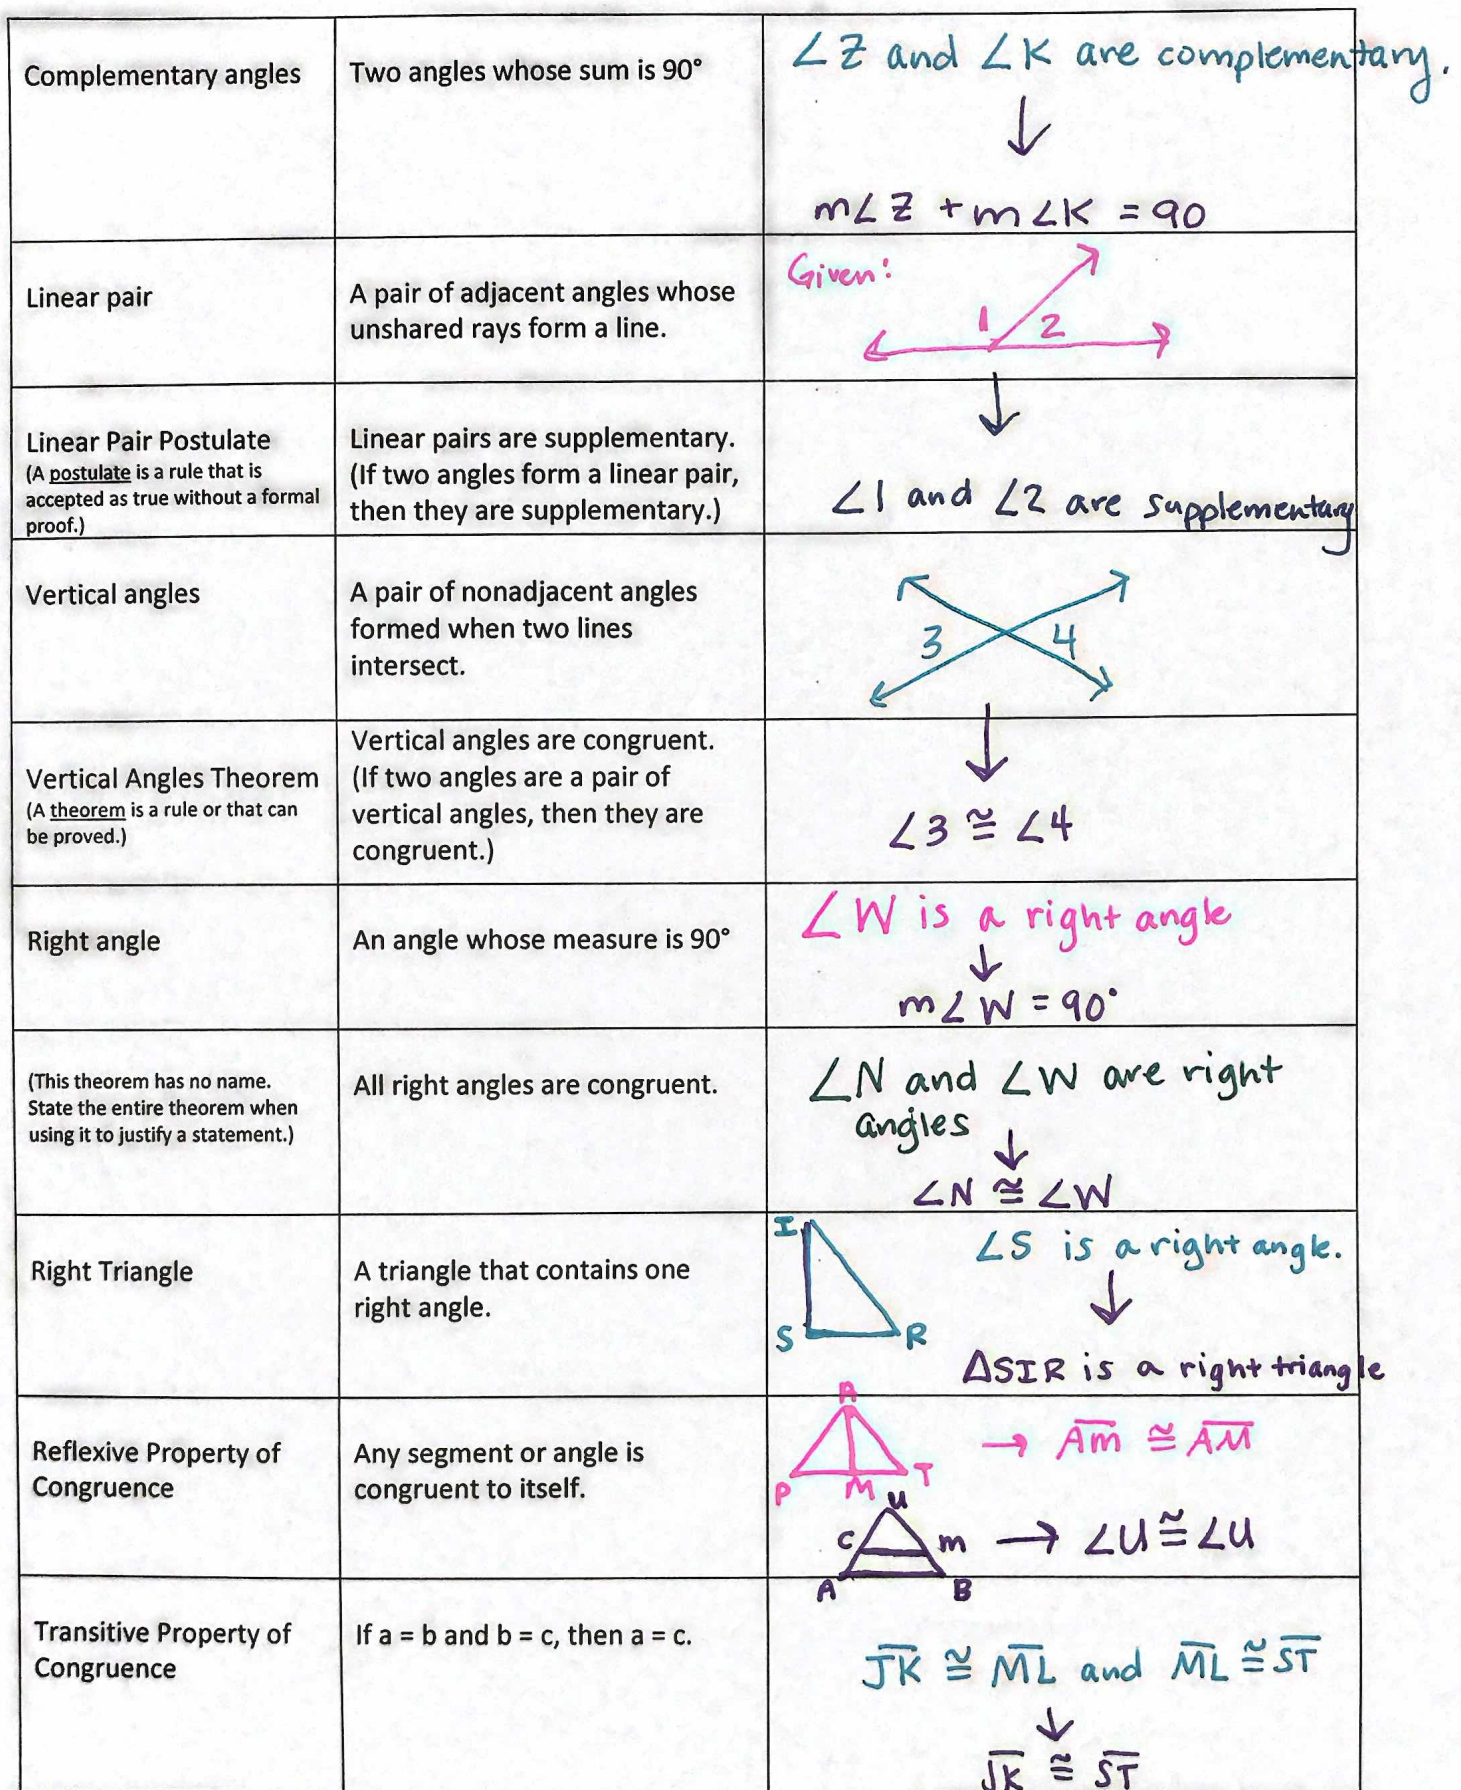 Complementary angles
Two angles whose sum is 90°
∠Z and ∠K are complementary.
↓
m∠Z + m∠K = 90
Linear pair
A pair of adjacent angles whose
unshared rays form a line.
Given:
1 2
↓
Linear Pair Postulate
(A postulate is a rule that is
accepted as true without a formal
proof.)
Linear pairs are supplementary.
(If two angles form a linear pair,
then they are supplementary.)
∠1 and ∠2 are supplementary
Vertical angles
A pair of nonadjacent angles
formed when two lines
intersect.
3 4
↓
Vertical Angles Theorem
(A theorem is a rule or that can
be proved.)
Vertical angles are congruent.
(If two angles are a pair of
vertical angles, then they are
congruent.)
∠3 ≅ ∠4
Right angle
An angle whose measure is 90°
∠W is a right angle
↓
m∠W = 90°
(This theorem has no name.
State the entire theorem when
using it to justify a statement.)
All right angles are congruent.
∠N and ∠W are right
angles
↓
∠N ≅ ∠W
Right Triangle
A triangle that contains one
right angle.
I
S R
∠S is a right angle.
↓
ΔSIR is a right triangle
Reflexive Property of
Congruence
Any segment or angle is
congruent to itself.
A
P M T
→ A̅M̅ ≅ A̅M̅
U
C m
A B
→ ∠U ≅ ∠U
Transitive Property of
Congruence
If a = b and b = c, then a = c.
J̅K̅ ≅ M̅L̅ and M̅L̅ ≅ S̅T̅
↓
J̅K̅ ≅ S̅T̅